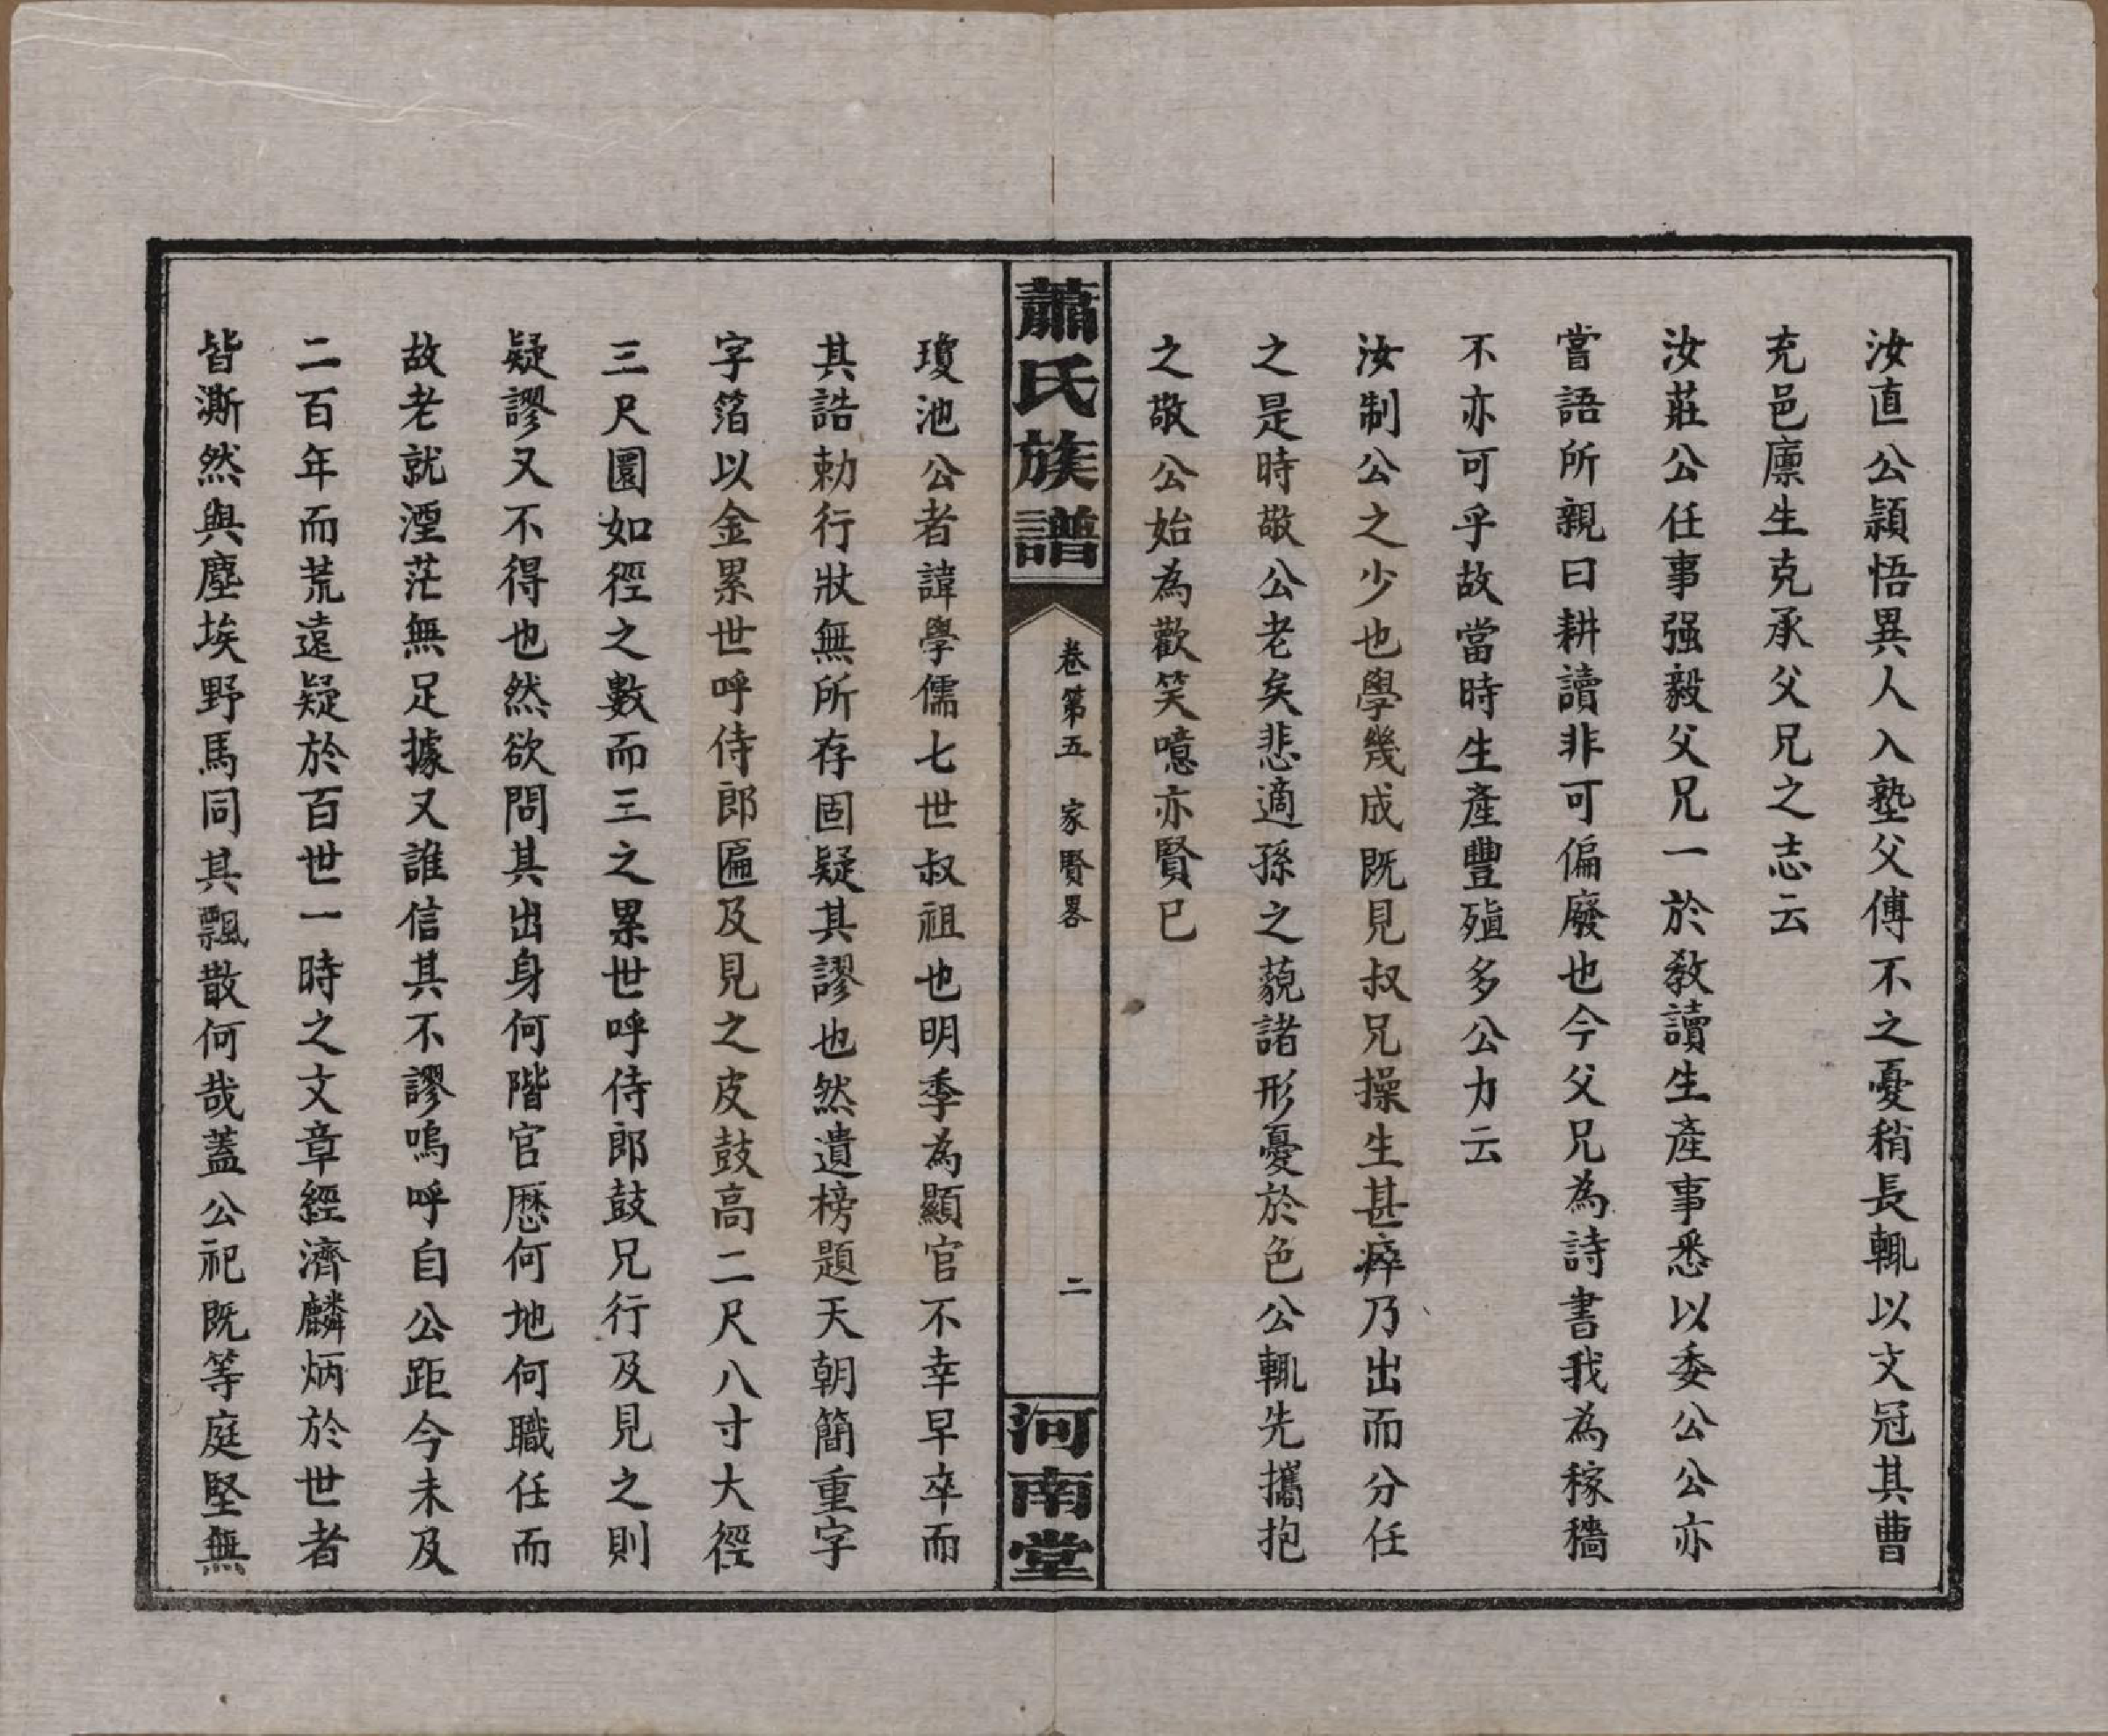 汝直公穎悟異人入塾父傅不之憂稍長輒以文冠其曹
充邑廪生克承父兄之志云
汝莊公任事强毅父兄一於教讀生產事悉以委公公亦
嘗語所親曰耕讀非可偏廢也今父兄為詩書我為稼穡
不亦可乎故當時生產豐殖多公力云
汝制公之少也學幾成既見叔兄操生甚瘁乃出而分任
之是時敬公老矣悲適孫之藐諸形憂於色公輒先攜抱
之敬公始為歡笑噫亦賢已
蕭氏族譜
卷第五 家賢畧
二
河南堂
瓊池公者諱學儒七世叔祖也明季為顯官不幸早卒而
其誥勅行狀無所存固疑其謬也然遺榜題天朝簡重字
字箔以金累世呼侍郎匾及見之皮鼓高二尺八寸大徑
三尺圜如徑之數而三之累世呼侍郎鼓兄行及見之則
疑謬又不得也然欲問其出身何階官歷何地何職任而
故老就湮茫無足據又誰信其不謬嗚呼自公距今未及
二百年而荒遠疑於百世一時之文章經濟麟炳於世者
皆澌然與塵埃野馬同其飄散何哉蓋公祀既等庭堅無